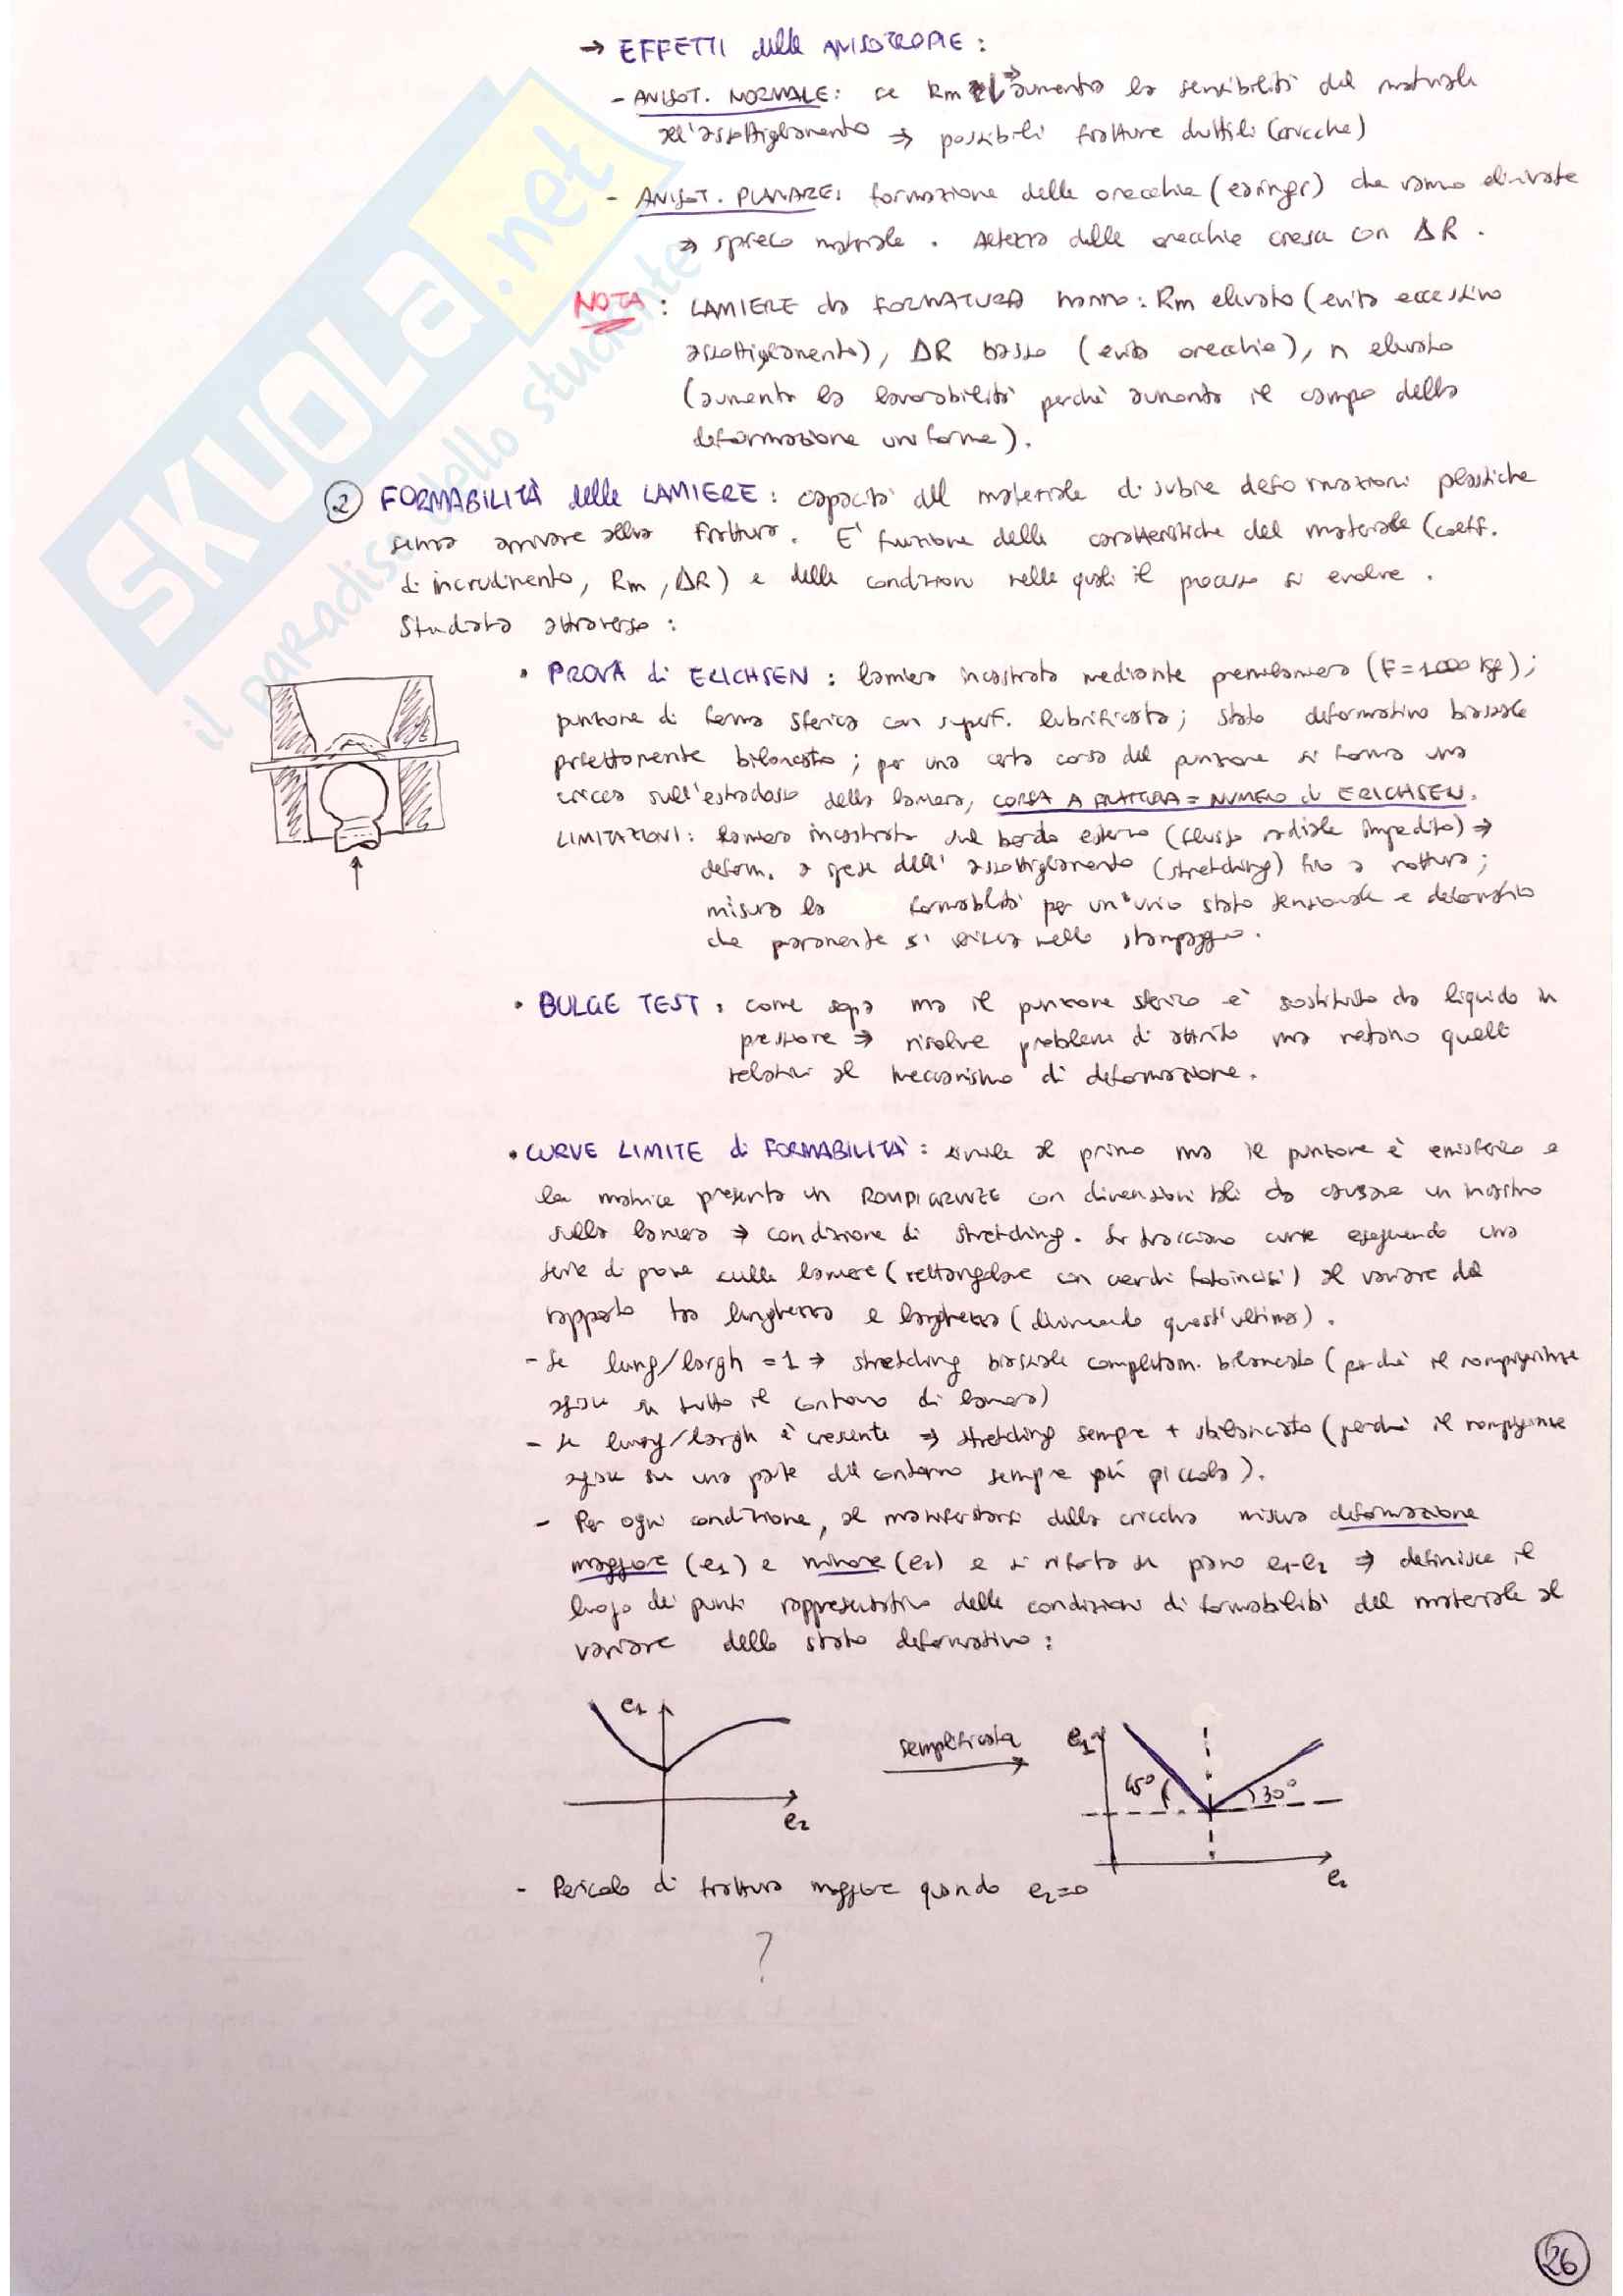 → EFFETTI delle ANISOTROPIE :
- ANISOT. NORMALE: se Rm ↓ ⇒ aumenta la sensibilità del materiale
all'assottigliamento ⇒ possibili fratture duttili (cricche)
- ANISOT. PLANARE: formazione delle orecchie (earings) che vanno eliminate
⇒ spreco materiale . Altezza delle orecchie cresce con ΔR .
NOTA : LAMIERE da FORMATURA hanno : Rm elevato (evita eccessivo
assottigliamento), ΔR basso (evita orecchie), n elevato
(aumenta la lavorabilità perchè aumenta il campo della
deformazione uniforme).
② FORMABILITÀ delle LAMIERE : capacità del materiale di subire deformazioni plastiche
senza arrivare alla frattura. E' funzione delle caratteristiche del materiale (coeff.
di incrudimento, Rm , ΔR) e delle condizioni nelle quali il processo si evolve .
Studiata attraverso :
• PROVA di ERICHSEN : lamiera incastrata mediante premilamiera (F=1000 kg) ;
punzone di forma sferica con superf. lubrificata ; stato deformativo biassiale
perfettamente bilanciato ; per una certa corsa del punzone si forma una
cricca sull'estradosso della lamiera, CORSA A FRATTURA = NUMERO di ERICHSEN.
LIMITAZIONI : lamiera incastrata sul bordo esterno (flusso radiale impedito) ⇒
deform. a spese dell' assottigliamento (stretching) fino a rottura ;
misura la formabilità per un unico stato tensionale e deformativo
che raramente si verifica nello stampaggio.
• BULGE TEST : come sopra ma il punzone sferico è sostituito da liquido in
pressione ⇒ risolve problemi di attrito ma restano quelli
relativi al meccanismo di deformazione.
• CURVE LIMITE di FORMABILITÀ : simile al primo ma il punzone è emisferico e
la matrice presenta un ROMPIGRINZE con dimensioni tali da causare un incastro
sulla lamiera ⇒ condizione di stretching. Si tracciano curve eseguendo una
serie di prove sulle lamiere (rettangolare con cerchi fotoincisi) al variare del
rapporto tra lunghezza e larghezza (diminuendo quest'ultima).
- Se lung/largh = 1 ⇒ stretching biassiale completam. bilanciato (perchè il rompigrinze
agisce su tutto il contorno di lamiera)
- Se lung/largh è crescente ⇒ stretching sempre + sbilanciato (perchè il rompigrinze
agisce su una parte del contorno sempre più piccola).
- Per ogni condizione, al manifestarsi della cricca misura deformazione
maggiore (e1) e minore (e2) e si riporta su piano e1-e2 ⇒ definisce il
luogo dei punti rappresentativo delle condizioni di formabilità del materiale al
variare dello stato deformativo :
e1
e2
semplificata
e1
45°
30°
e2
- Pericolo di frattura maggiore quando e2=0
?
26
SKUOLA.net
il paradiso dello studente